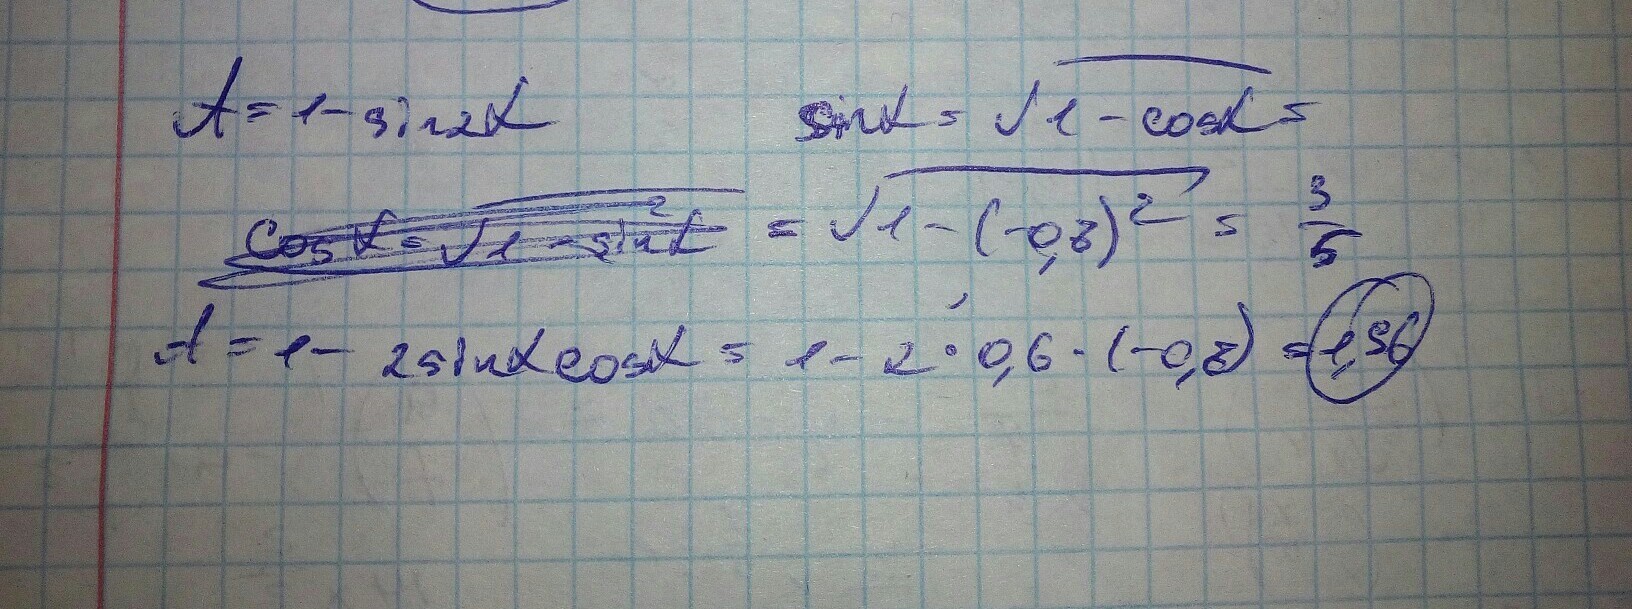 A = 1 - sin2α
sinα = √1 - cosα =
cosα = √1 - sin²α
= √1 - (-0,8)² = 3/5
A = 1 - 2sinαcosα = 1 - 2 · 0,6 · (-0,8) = 1,96